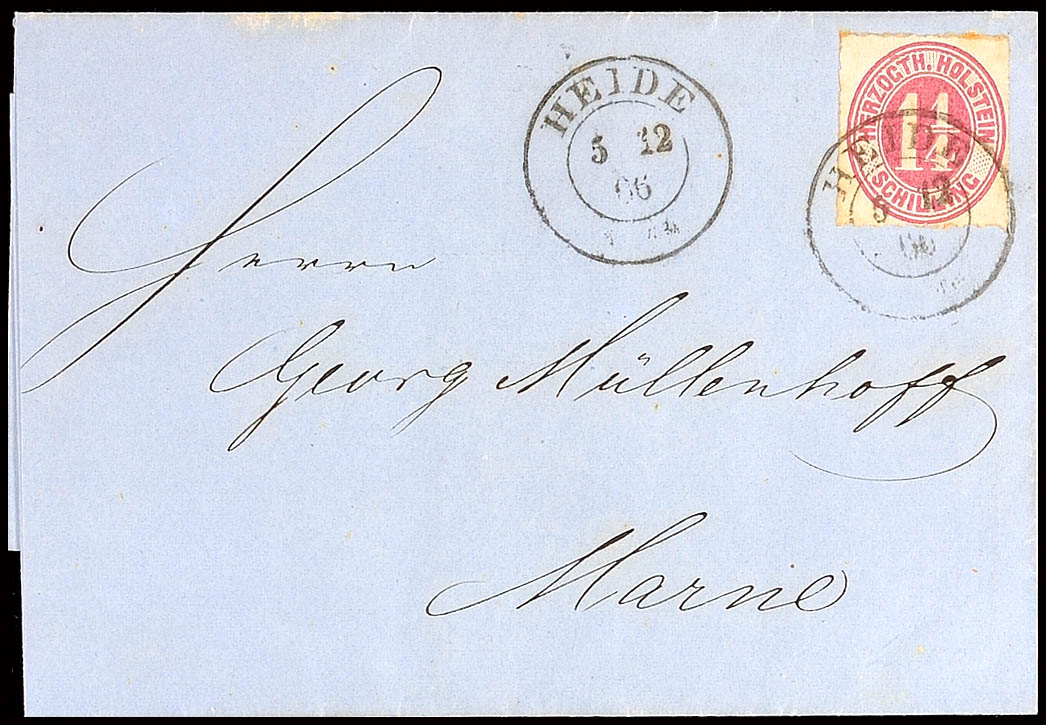 HEIDE
5 12
66
HERZOGTH. HOLSTEIN
1 1/4
SCHILLING
HEIDE
5 12
66
Herrn
Georg Müllenhoff
Marne